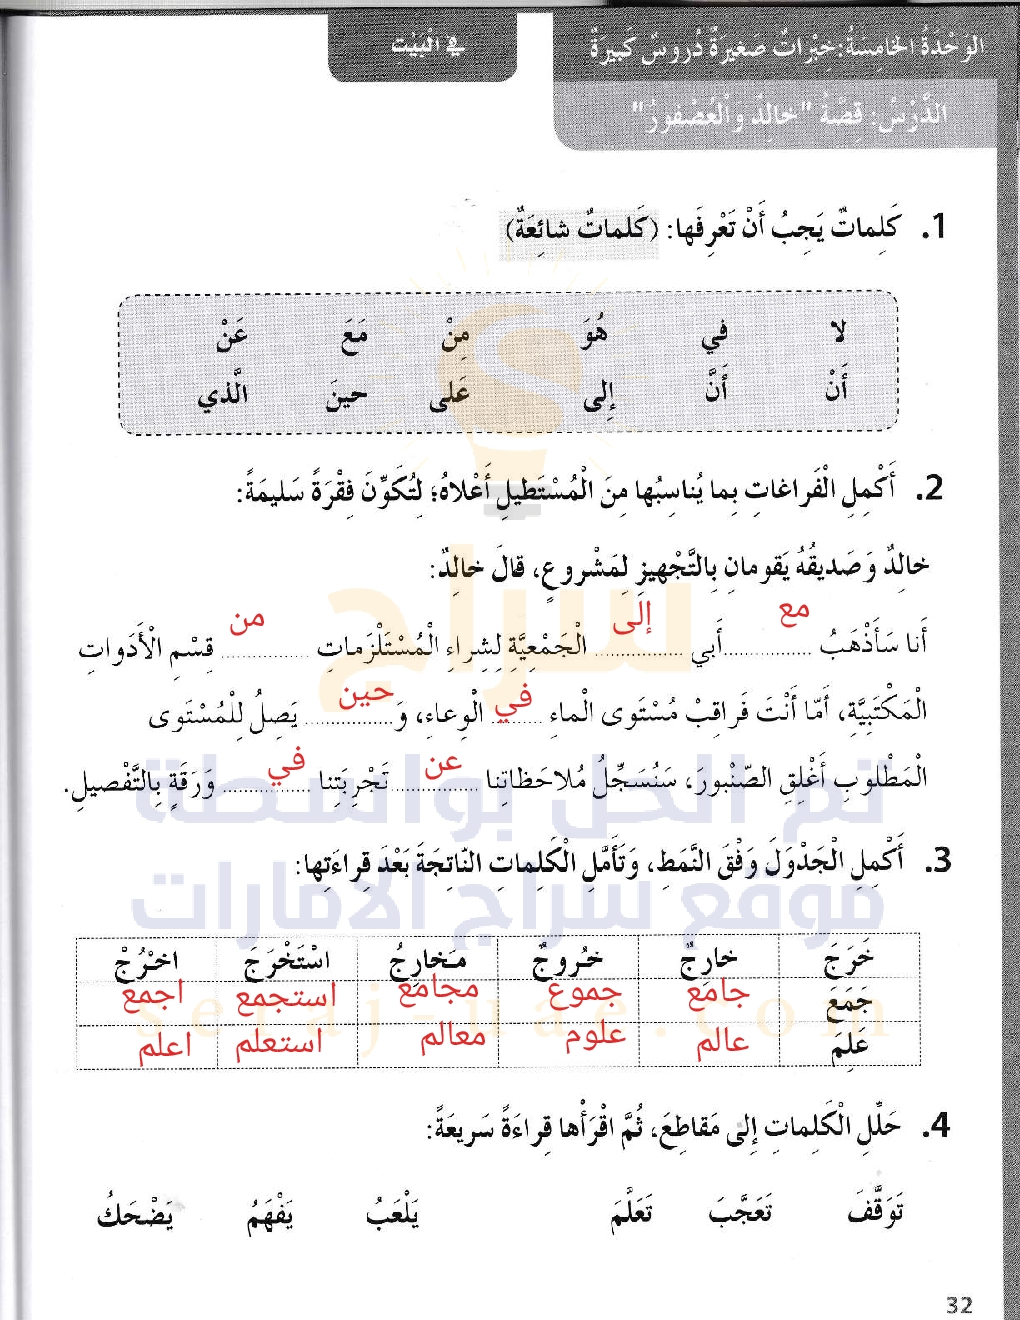 الوَحْدَةُ الخامِسَةُ: خِبْراتٌ صَغيرَةٌ دُروسٌ كَبيرَةٌ
في الْبَيْتِ
الدَّرْسُ: قِصَّةُ "خالِدٌ والْعُصْفورُ"
1. كَلِماتٌ يَجِبُ أَنْ تَعْرِفَها: (كَلِماتٌ شائِعَةٌ)
لا في هُوَ مِنْ مَعَ عَنْ
أَنْ أَنَّ إِلى عَلى حينَ الَّذي
2. أَكْمِلِ الْفَراغاتِ بِما يُناسِبُها مِنَ الْمُسْتَطيلِ أَعْلاهُ؛ لِتُكَوِّنَ فِقْرَةً سَليمَةً:
خالِدٌ وَصَديقُهُ يَقومانِ بِالتَّجْهيزِ لِمَشْروعٍ، قالَ خالِدٌ:
أَنا سَأَذْهَبُ مع أَبي إلى الْجَمْعِيَّةِ لِشِراءِ الْمُسْتَلْزَماتِ من قِسْمِ الْأَدَواتِ
الْمَكْتَبِيَّةِ، أَمّا أَنْتَ فَراقِبْ مُسْتَوى الْماءِ في الْوِعاءِ، وَ حين يَصِلُ لِلْمُسْتَوى
الْمَطْلوبِ أَغْلِقِ الصُّنْبورَ، سَنُسَجِّلُ مُلاحَظاتِنا عن تَجْرِبَتِنا في وَرَقَةٍ بِالتَّفْصيلِ.
تم الحل بواسطة
3. أَكْمِلِ الْجَدْوَلَ وَفْقَ النَّمَطِ، وَتَأَمَّلِ الْكَلِماتِ النّاتِجَةَ بَعْدَ قِراءَتِها:
موقع سراج الامارات
خَرَجَ خارِجٌ خُروجٌ مَخارِجُ اسْتَخْرَجَ اخْرُجْ
جَمَعَ جامع جموع مجامع استجمع اجمع
seraj-uae.com
عَلِمَ عالم علوم معالم استعلم اعلم
4. حَلِّلِ الْكَلِماتِ إِلى مَقاطِعَ، ثُمَّ اقْرَأْها قِراءَةً سَريعَةً:
تَوَقَّفَ تَعَجَّبَ تَعَلَّمَ يَلْعَبُ يَفْهَمُ يَضْحَكُ
32
سراج